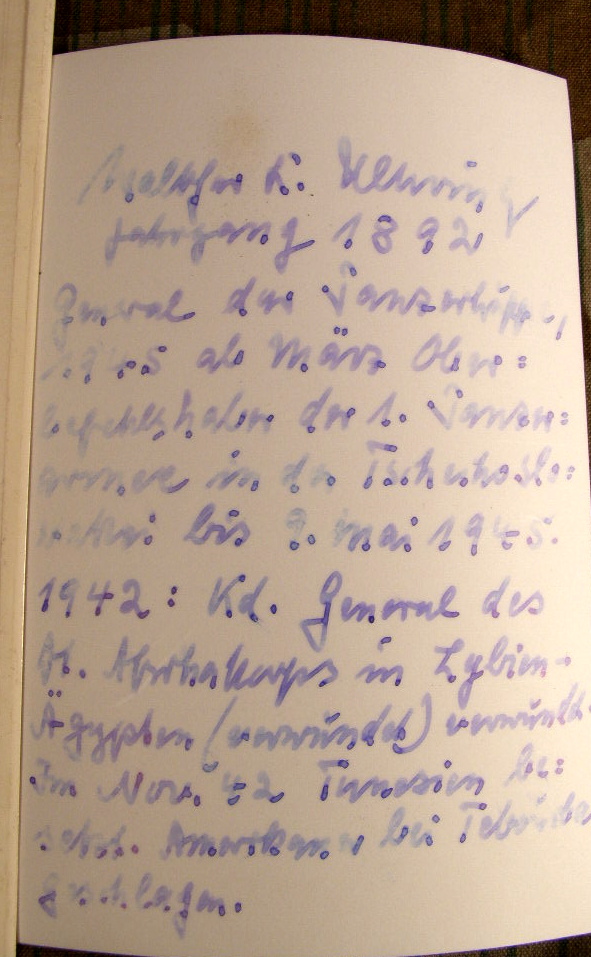 Walther K. Nehring
Jahrgang 1892
General der Panzertruppe,
1945 ab März Ober=
befehlshaber der 1. Panzer=
armee in der Tschechoslo=
wakei bis 9. Mai 1945.
1942: Kd. General des
Dt. Afrikakorps in Lybien-
Ägypten (verwundet) verwundet.
Im Nov. 42 Tunesien be=
setzt. Amerikaner bei Tebourba
geschlagen.